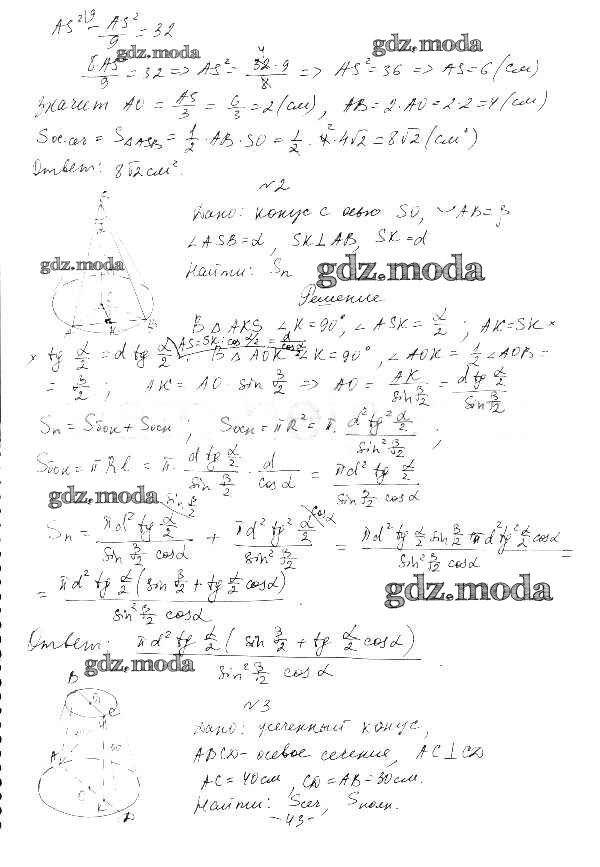 AS² - AS²/9 = 32
gdz.moda gdz.moda
8AS²/9 = 32 => AS² = 32·9/8 => AS² = 36 => AS = 6 (см)
значит AO = AS/3 = 6/3 = 2 (см), AB = 2·AO = 2·2 = 4 (см)
Sос.сеч = S△ASB = 1/2 · AB · SO = 1/2 · 4 · 4√2 = 8√2 (см²)
Ответ: 8√2 см².
№2
Дано: конус с осью SO, ◡AB = β
∠ASB = α, SK ⊥ AB, SK = d
gdz.moda
Найти: Sп
gdz.moda
Решение
В △AKS ∠K = 90°, ∠ASK = α/2 ; AK = SK ×
× tg α/2 = d tg α/2 ; AS = SK : cos α/2 = d/cos α/2 В △AOK ∠K = 90°, ∠AOK = 1/2 ∠AOB =
= β/2 ; AK = AO · sin β/2 => AO = AK/sin β/2 = d tg α/2 / sin β/2
Sп = Sбок + Sосн ; Sосн = πR² = π · d² tg² α/2 / sin² β/2
Sбок = πRl = π · d tg α/2 / sin β/2 · d/cos α = πd² tg α/2 / sin β/2 cos α
gdz.moda
Sп = πd² tg α/2 / sin² β/2 cos α + πd² tg² α/2 / sin² β/2 = πd² tg α/2 sin β/2 + πd² tg² α/2 cos α / sin² β/2 cos α =
= πd² tg α/2 (sin β/2 + tg α/2 cos α) / sin² β/2 cos α
gdz.moda
Ответ: πd² tg α/2 (sin β/2 + tg α/2 cos α) / sin² β/2 cos α
gdz.moda
№3
Дано: усеченный конус,
ABCD - осевое сечение, AC ⊥ CD
AC = 40 см, CD = AB = 30 см.
Найти: Sсеч, Sполн.
- 43 -